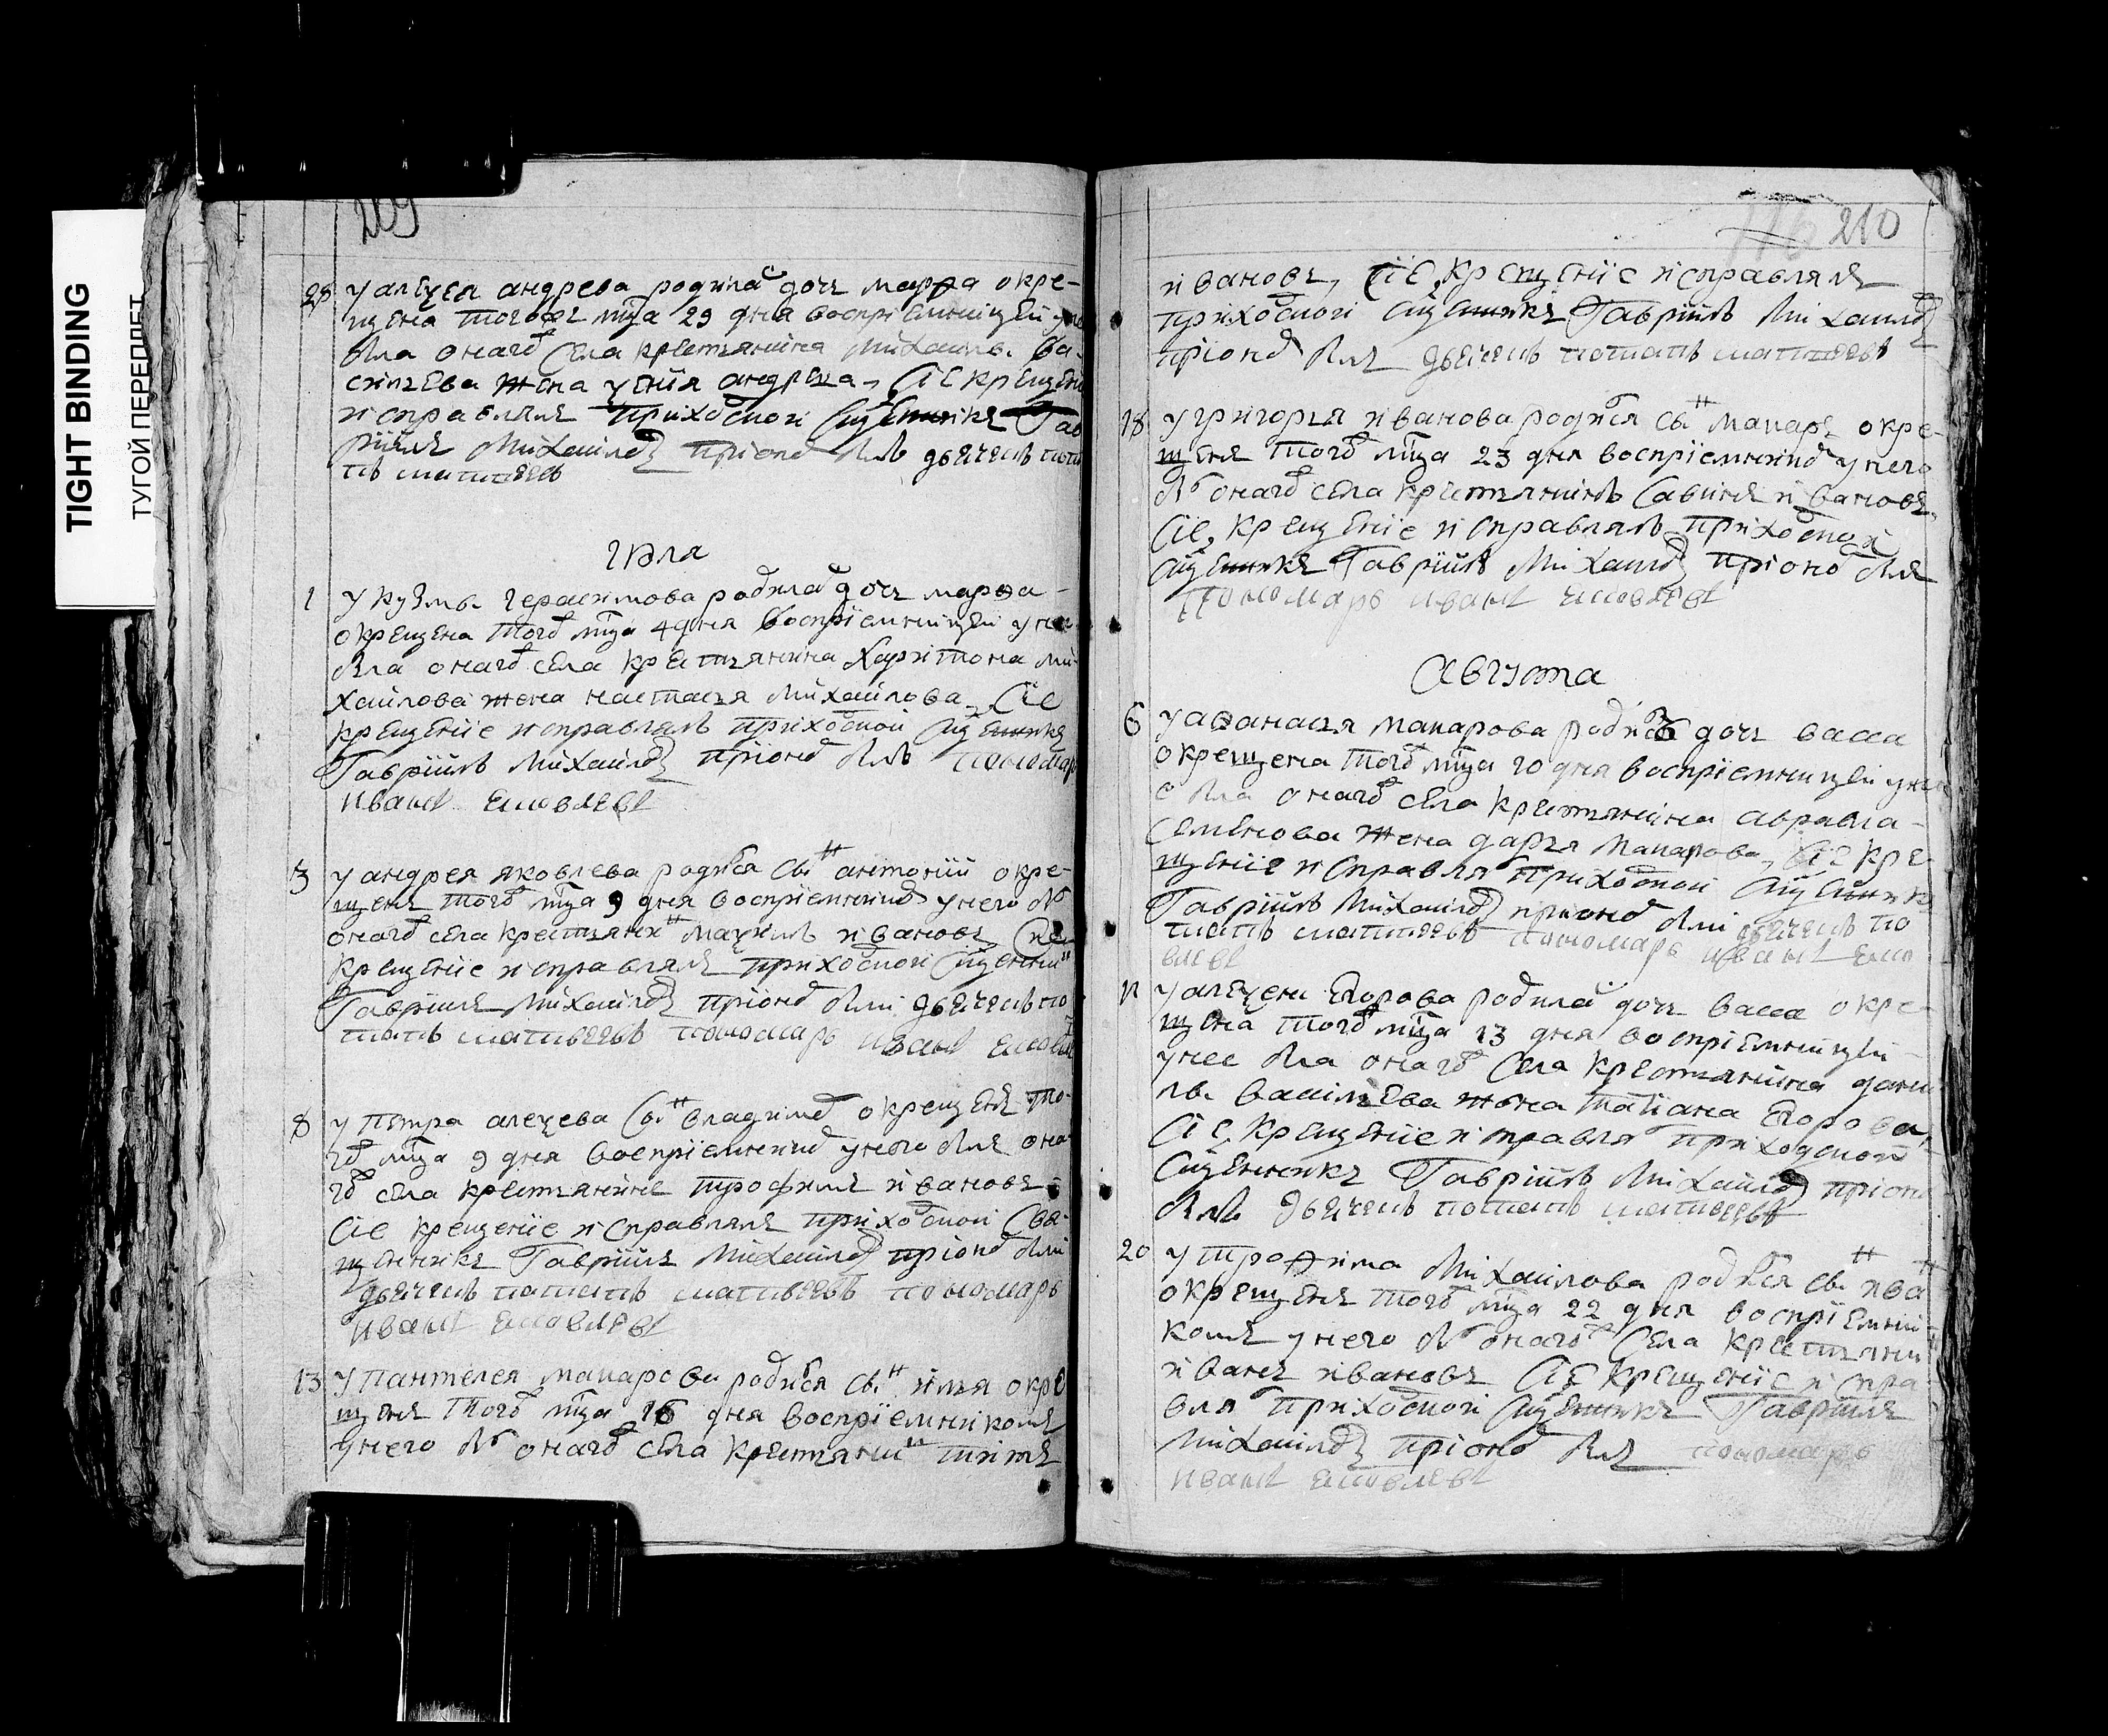 TIGHT BINDING
ТУГОЙ ПЕРЕПЛЕТ
209
28 У алеѯея андреева родилас дочь марѳа окре-
щена тогожъ мца 29 дня восприемницей у нее
была онаго села крестьянина михаила ва-
сильева жена андреева, сие крещение
исправлялъ приходской сщенникъ Гав
риилъ Михайловъ при ономъ былъ дьячекъ пота
пъ матвеевъ
Июля
1 У кузмы герасимова родилас дочь марѳа
окрещена того мца 4 дня восприемницей у нее
была онаго села крестьянина харитона ми-
хаилова жена настасья михаилова, сие
крещение исправлялъ приходской сщенникъ
Гавриилъ Михайловъ при ономъ былъ пономарь
иванъ
3 У андрея яковлева родися снъ антоний окре-
щенъ того мца 9 дня восприемникомъ у него бы
онаго села крестьянинъ иванов сие
крещение исправлялъ приходской сщенникъ
Гавриилъ Михайловъ при ономъ были дьячекъ по
тапъ матвеевъ пономарь иванъ
8 У петра алеѯеева снъ владимиръ окрещенъ то-
го мца 9 дня восприемникомъ у него былъ она
го села крестьянинъ трофимъ иванов
сие крещение исправлялъ приходской свя-
щенникъ Гавриилъ Михайловъ при ономъ были
дьячекъ потапъ матвеевъ пономарь
иванъ
13 У пантелея макарова родися снъ илья окре
щенъ того мца 16 дня восприемникомъ
у него бы онаго села крестьянинъ титъ
210
ивановъ, сие крещение исправлялъ
приходской сщенникъ Гавриилъ Михайловъ
при ономъ былъ дьячекъ потапъ матвеевъ
18 У григорья иванова родися снъ макаръ окре-
щенъ того мца 23 дня восприемникомъ у него
бы онаго села крестьянинъ савинъ ивановъ,
сие крещение исправлялъ приходской
сщенникъ Гавриилъ Михайловъ при ономъ былъ
пономарь иванъ
Августа
6 У аѳанасья макарова родилас дочь васса
окрещена того мца 10 дня восприемницей у нее
была онаго села крестьянина авраама
семенова жена дарья макарова, сие кре
щение исправлял приходской сщенникъ
Гавриилъ Михайловъ при ономъ были дьячекъ по
тапъ матвеевъ пономарь иванъ
У алеѯея егорова родилас дочь васса окре-
щена того мца 13 дня восприемницей
у нее была онаго села крестьянина дани
лы васильева жена татиана егорова,
сие крещение исправлял приходской
сщенникъ Гавриилъ Михайловъ при ономъ
былъ дьячекъ потапъ матвеевъ
20 У трофима Михаилова родися снъ иванъ
окрещенъ того мца 22 дня восприемни-
комъ у него бы онаго села крестьянинъ
иванъ ивановъ сие крещение испра
влял приходской сщенникъ Гавриилъ
Михайловъ при ономъ былъ пономарь
иванъ